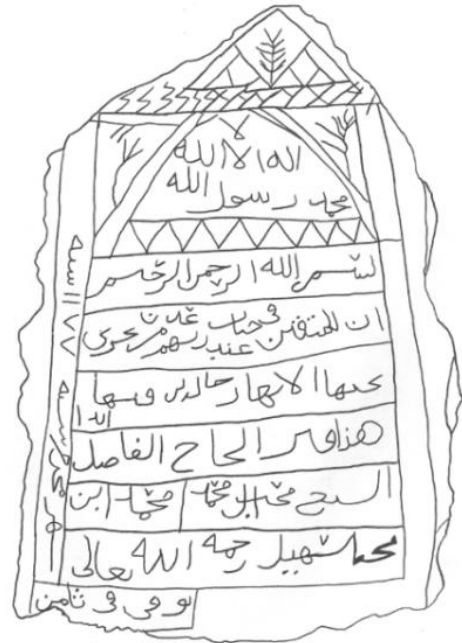 لا
اله الا الله
محمد رسول الله
بسم الله الرحمن الرحيم
ان المتقين في جنات عدن عند ربهم تجري
تحتها الانهار خالدين فيها ابدا
هذا قبر الحاج الفاضل
الشيخ محمد ابن محمد محمد ابن
محمد شهيل رحمه الله تعالى
توفي في ثامن
شهر محرم سنه